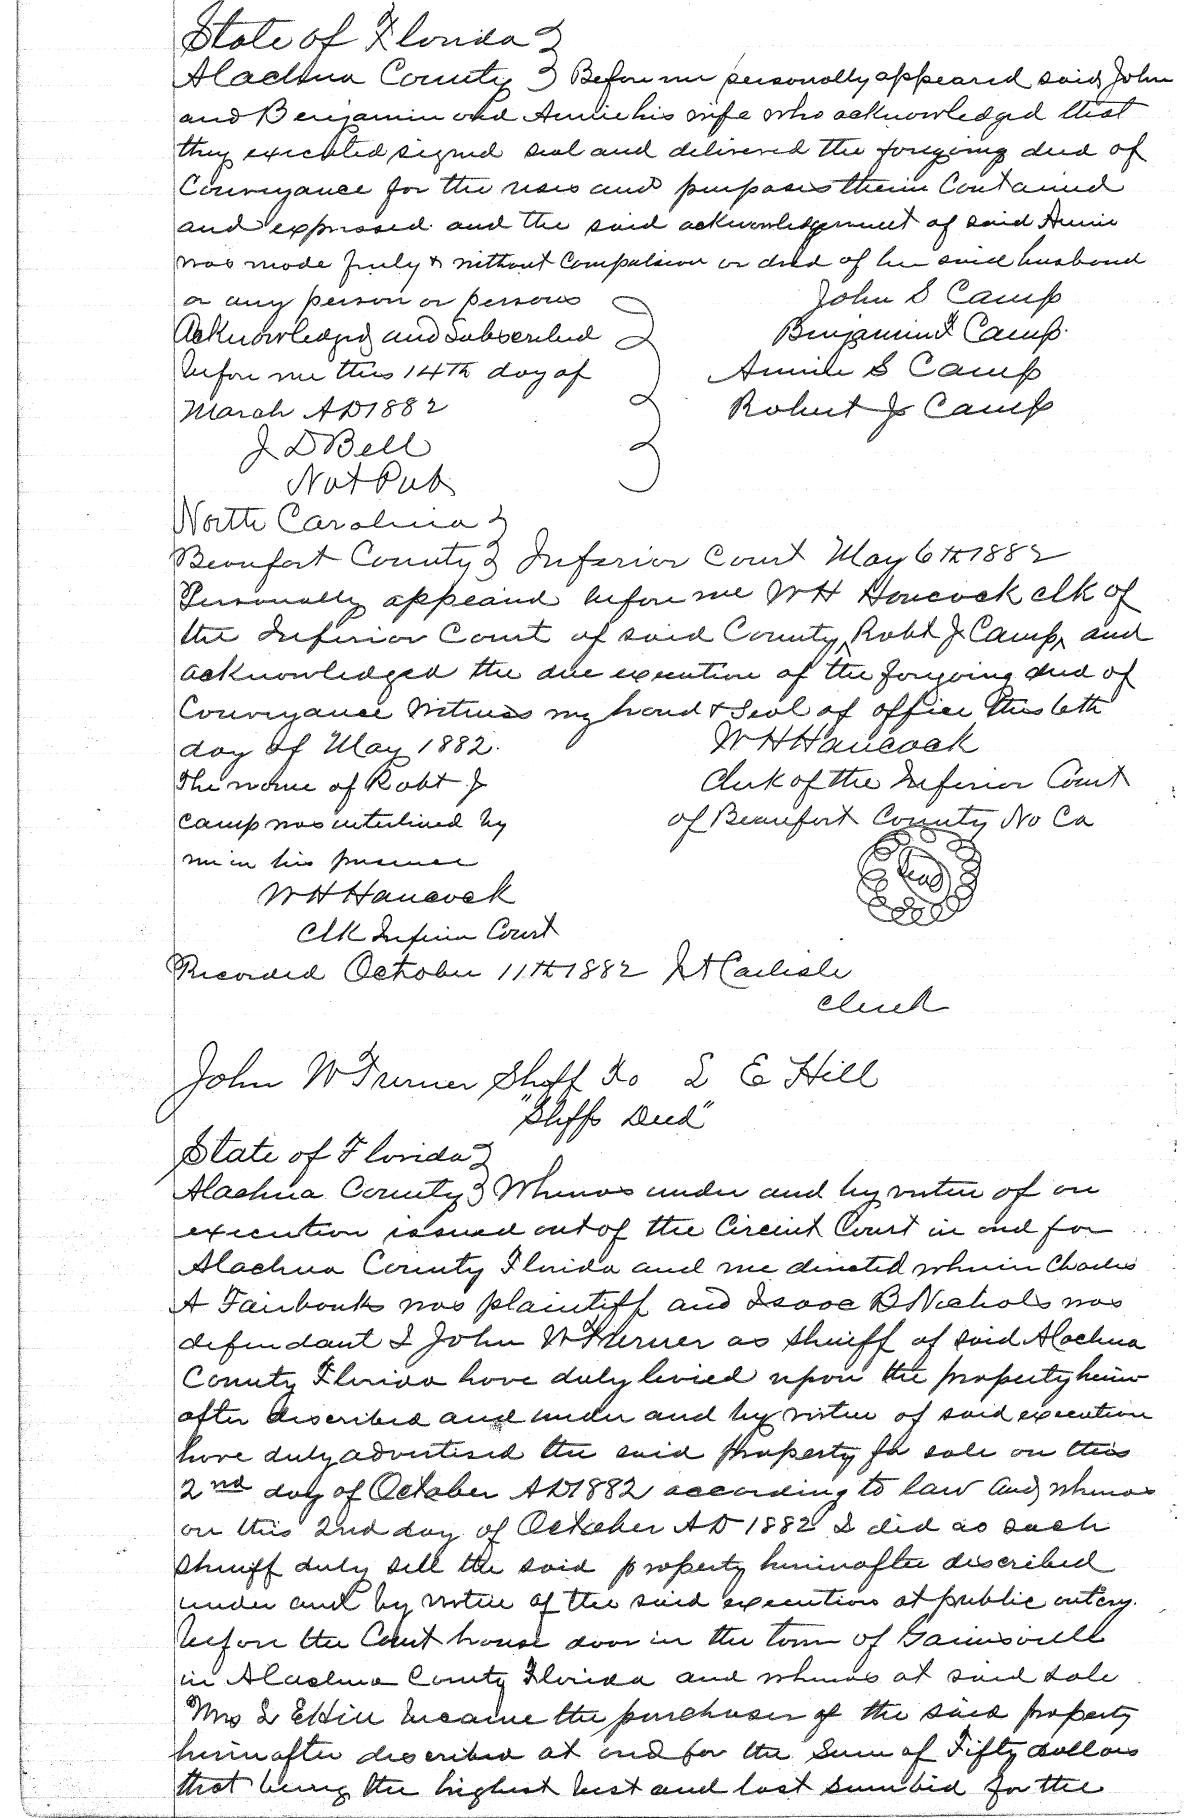 State of Florida }
Alachua County } Before me personally appeared said John
and Benjamin and Annie his wife who acknowledged that
they executed signed seal and delivered the foregoing deed of
Conveyance for the uses and purposes therein Contained
and expressed and the said acknowledgement of said Annie
was made freely & without Compulsion or dred of her said husband
or any person or persons
John S Camp
Acknowledged and Subscribed
Benjamin F Camp
before me this 14th day of
Annie S Camp
March AD 1882
Robert J Camp
J D Bell
Not Pub
North Carolina }
Beaufort County } Inferior Court May 6th 1882
Personally appeard before me WH Hancock clk of
the Inferior Court of said County ^ Robt J Camp ^ and
acknowledged the due execution of the forgoing deed of
Conveyance Witness my hand & Seal of office this 6th
day of May 1882.
WH Hancock
The name of Robt J
Clerk of the Inferior Court
Camp was interlined by
of Beaufort County No Ca
me in his presence
Seal
WH Hancock
Clk Inferior Court
Recorded October 11th 1882 J A Carlisle
clerk
John W Turner Shff To L E Hill
"Shffs Deed"
State of Florida }
Alachua County } Whereas under and by virtue of an
execution issued out of the Circuit Court in and for
Alachua County Florida and me directed wherein Charles
A Fairbanks was plaintiff and Isaac B Nichols was
defendant I John W Turner as Sheriff of said Alachua
County Florida have duly levied upon the property herein
after described and under and by virtue of said execution
have duly advertised the said property for sale on this
2nd day of October AD 1882 according to law and whereas
on this 2nd day of October AD 1882 I did as such
Sheriff duly sell the said property hereinafter described
under and by virtue of the said execution at public outcry.
before the Court house door in the town of Gainesville
in Alachua County Florida and whereas at said sale
Mrs L E Hill became the purchaser of the said property
hereinafter described at and for the Sum of Fifty dollars
that being the highest best and last sum bid for the